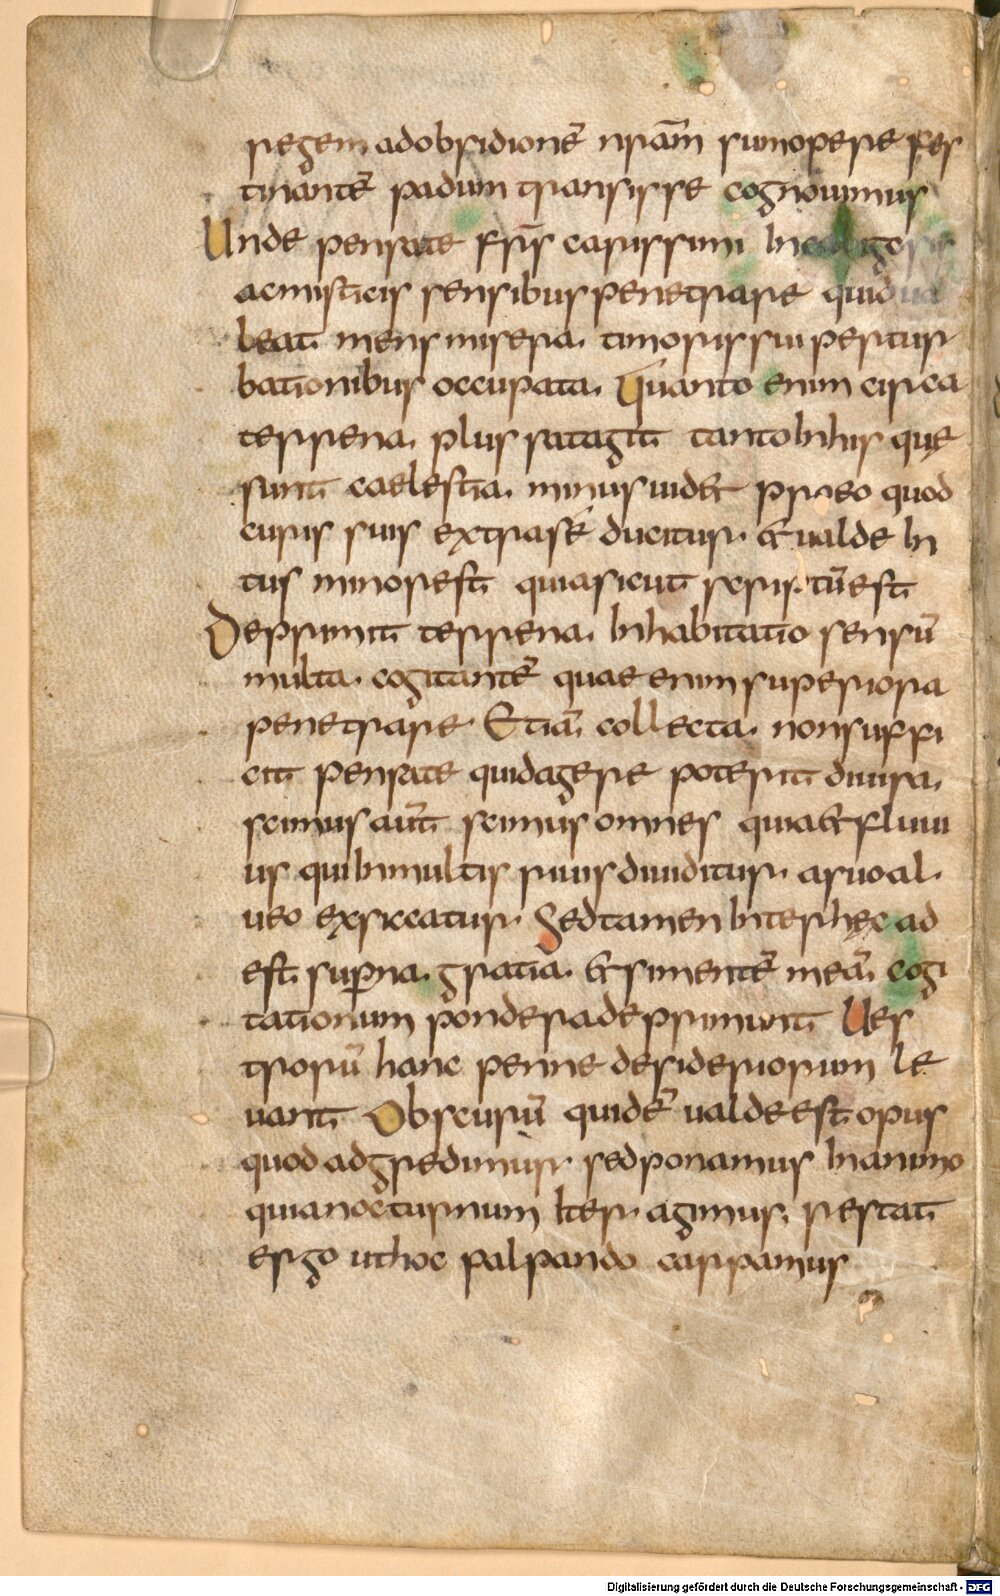 regem adobsidionē nrām sumopere fes
tinantē padum transisse cognouimus
Unde pensate frīs carissimi In
acmisticis sensibus penetrare quid ua
beat mens misera. timoris sui pertur
bationibus occupata. Quanto enim circa
terrena. plus satagit tanto In his que
sunt caelestia. minus uidet pro eo quod
curis suis extra sē ducitur. & ualde In
tus minor est quia sicut scriptū est
Deprimit terrena. Inhabitatio sensū
multa. cogitantē quae enim superiora
penetrare. Etiā collecta. non suffi
cit pensate quid agere poterit diuisa.
scimus aūt scimus omnes quia & fluui
us qui In multis riuis diuiditur. a suo al
ueo exsiccatur. Sed tamen Inter hęc ad
est suꝑna. gratia. & si mentē meā. cogi
tationum pondera deprimunt Ues
trorū hanc penne desideriorum le
uant Obscurū quidē ualde est opus
quod adgredimur sed ponamus In animo
quia nocturnum Iter. agimus. restat
ergo ut hoc palpando carpamus
Digitalisierung gefördert durch die Deutsche Forschungsgemeinschaft - DFG